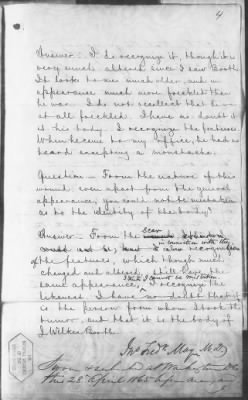 4
Answer - I do recognize it, though it is
very much altered since I saw Booth.
It looks to me much older, and in
appearance much more freckled than
he was. I do not recollect that he was
at all freckled. I have no doubt it
is his body. I recognize the features.
When he came to my office, he had no
beard excepting a moustache.
Question - From the nature of this
wound, even apart from the general
appearance, you could not be mistaken
as to the identity of the body?
Answer - From the scar
in connection with the
of the features, which though much
changed and altered, still have the
same appearance, I think I cannot be mistaken. I recognize the
likeness. I have no doubt that it
is the person from whom I took the
tumor, and that it is the body of
J. Wilkes Booth.
Jno Fredk. May M.D.
Sworn
this 28 April 1865